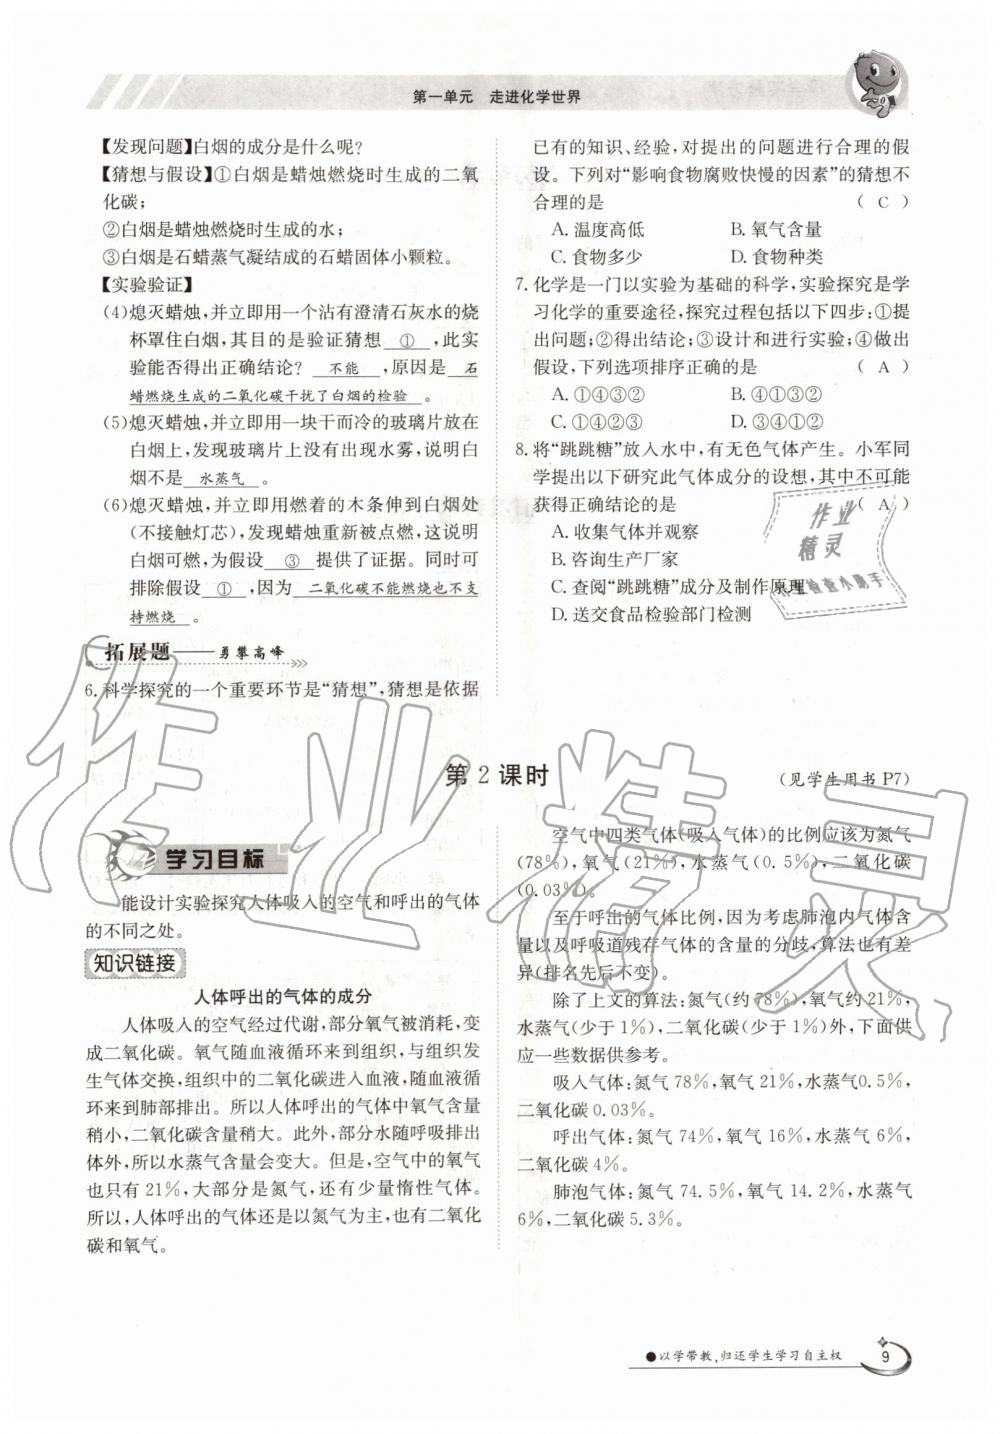 第一单元 走进化学世界
【发现问题】白烟的成分是什么呢?
【猜想与假设】①白烟是蜡烛燃烧时生成的二氧
化碳;
②白烟是蜡烛燃烧时生成的水;
③白烟是石蜡蒸气凝结成的石蜡固体小颗粒。
【实验验证】
(4)熄灭蜡烛,并立即用一个沾有澄清石灰水的烧
杯罩住白烟,其目的是验证猜想 ① ,此实
验能否得出正确结论? 不能 ,原因是 石
蜡燃烧生成的二氧化碳干扰了白烟的检验 。
(5)熄灭蜡烛,并立即用一块干而冷的玻璃片放在
白烟上,发现玻璃片上没有出现水雾,说明白
烟不是 水蒸气 。
(6)熄灭蜡烛,并立即用燃着的木条伸到白烟处
(不接触灯芯),发现蜡烛重新被点燃,这说明
白烟可燃,为假设 ③ 提供了证据。同时可
排除假设 ① ,因为 二氧化碳不能燃烧也不支
持燃烧 。
拓展题——勇攀高峰
6.科学探究的一个重要环节是“猜想”,猜想是依据
已有的知识、经验,对提出的问题进行合理的假
设。下列对“影响食物腐败快慢的因素”的猜想不
合理的是 ( C )
A.温度高低 B.氧气含量
C.食物多少 D.食物种类
7.化学是一门以实验为基础的科学,实验探究是学
习化学的重要途径,探究过程包括以下四步:①提
出问题;②得出结论;③设计和进行实验;④做出
假设,下列选项排序正确的是 ( A )
A.①④③② B.④①③②
C.①④②③ D.③④①②
8.将“跳跳糖”放入水中,有无色气体产生。小军同
学提出以下研究此气体成分的设想,其中不可能
获得正确结论的是 ( A )
A.收集气体并观察
B.咨询生产厂家
C.查阅“跳跳糖”成分及制作原理
D.送交食品检验部门检测
作业
精灵
作业检查小助手
第2课时
(见学生用书P7)
学习目标
能设计实验探究人体吸入的空气和呼出的气体
的不同之处。
知识链接
人体呼出的气体的成分
人体吸入的空气经过代谢,部分氧气被消耗,变
成二氧化碳。氧气随血液循环来到组织,与组织发
生气体交换,组织中的二氧化碳进入血液,随血液循
环来到肺部排出。所以人体呼出的气体中氧气含量
稍小,二氧化碳含量稍大。此外,部分水随呼吸排出
体外,所以水蒸气含量会变大。但是,空气中的氧气
也只有21%,大部分是氮气,还有少量惰性气体。
所以,人体呼出的气体还是以氮气为主,也有二氧化
碳和氧气。
空气中四类气体(吸入气体)的比例应该为氮气
(78%),氧气(21%),水蒸气(0.5%),二氧化碳
(0.03%)。
至于呼出的气体比例,因为考虑肺泡内气体含
量以及呼吸道残存气体的含量的分歧,算法也有差
异(排名先后不变)。
除了上文的算法:氮气(约78%),氧气约21%,
水蒸气(少于1%),二氧化碳(少于1%)外,下面供
应一些数据供参考。
吸入气体:氮气78%,氧气21%,水蒸气0.5%,
二氧化碳0.03%。
呼出气体:氮气74%,氧气16%,水蒸气6%,
二氧化碳4%。
肺泡气体:氮气74.5%,氧气14.2%,水蒸气
6%,二氧化碳5.3%。
作业精灵
●以学带教,归还学生学习自主权
9